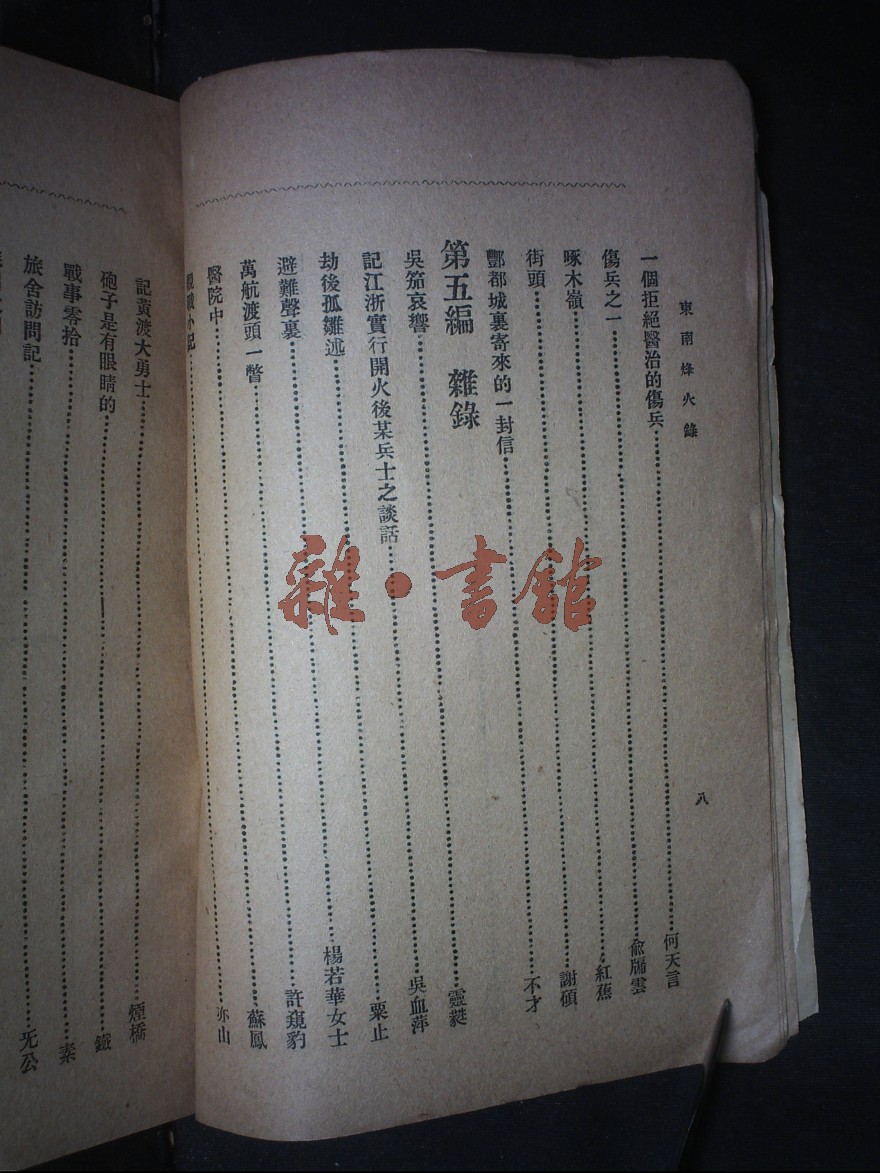 東南烽火錄
八
一個拒絕醫治的傷兵……何天言
傷兵之一……俞牖雲
啄木嶺……紅蕉
街頭……謝碩
酆都城裏寄來的一封信……不才
第五編 雜錄
吳笳哀響……靈蕤
記江浙實行開火後某兵士之談話……吳血萍
劫後孤雛述……粟止
避難聲裏……楊若華女士
萬航渡頭一瞥……許窺豹
醫院中……蘇鳳
觀戰小記……亦山
記黃渡大勇士……煙橋
砲子是有眼睛的……鐵
戰事零拾……素
旅舍訪問記……旡公
雜·書館